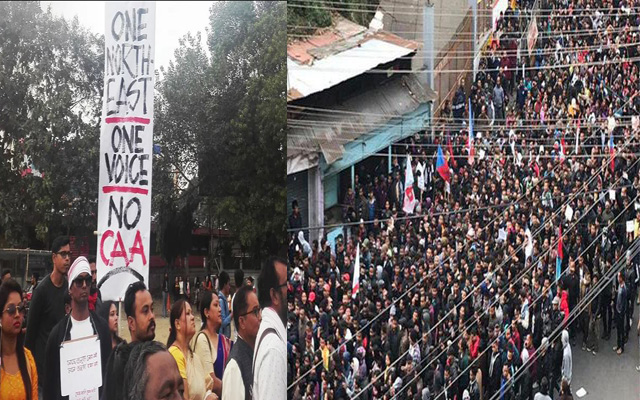 ONE
NORTH-
EAST
ONE
VOICE
NO
CAA